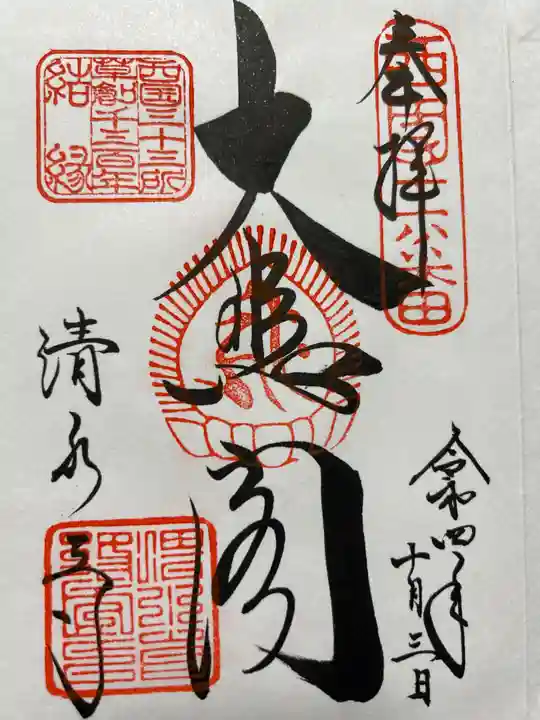 奉拝
西国十六番
令和四年
十月三日
大悲閣
西国三十三所
草創千三百年
結縁
清水寺